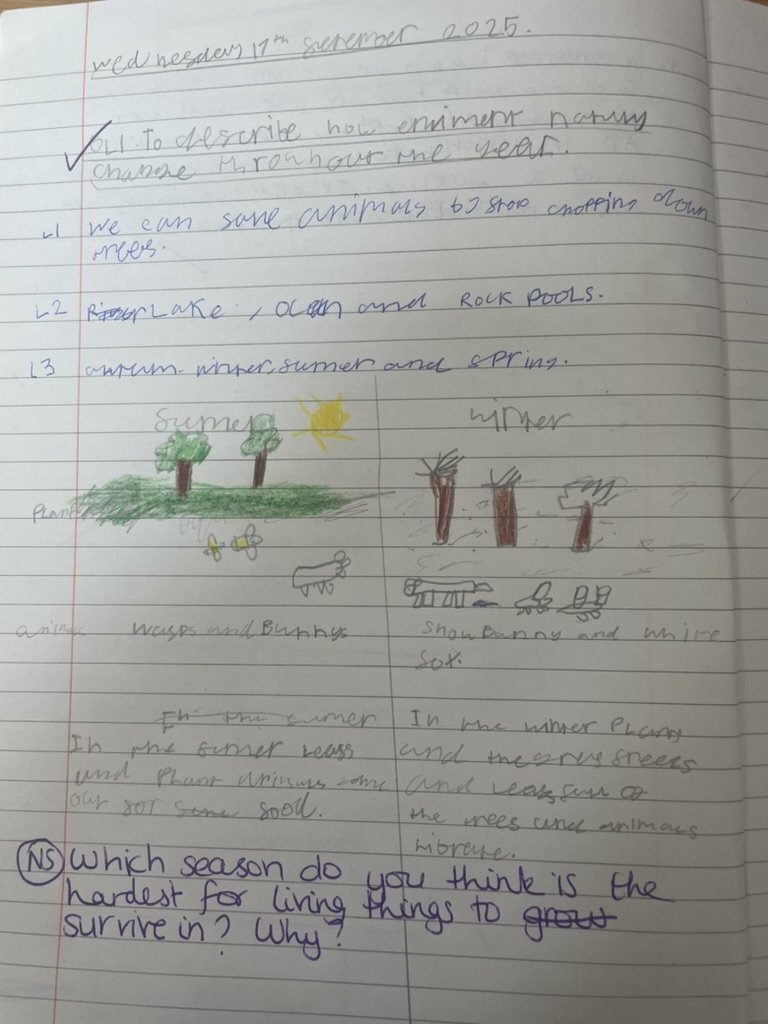 Wednesday 17th September 2025.
OLI: To describe how enviment natury
change throuhout the year.
L1 We can save animals by stop chopping down
trees.
L2 River Lake, Ocean and ROCK POOLS.
L3 autum winter, sumer and spring.
Sumer
winter
Plant
animals wasps and Bunnys
Snow Bunny and white
fox.
In the sumer
In the sumer leafs
and Plant animas come
out for some food.
In the winter Plants
and the trees
and leafs fall of
the trees and animals
hibrate.
NS Which season do you think is the
hardest for living things to grow
survive in? Why?